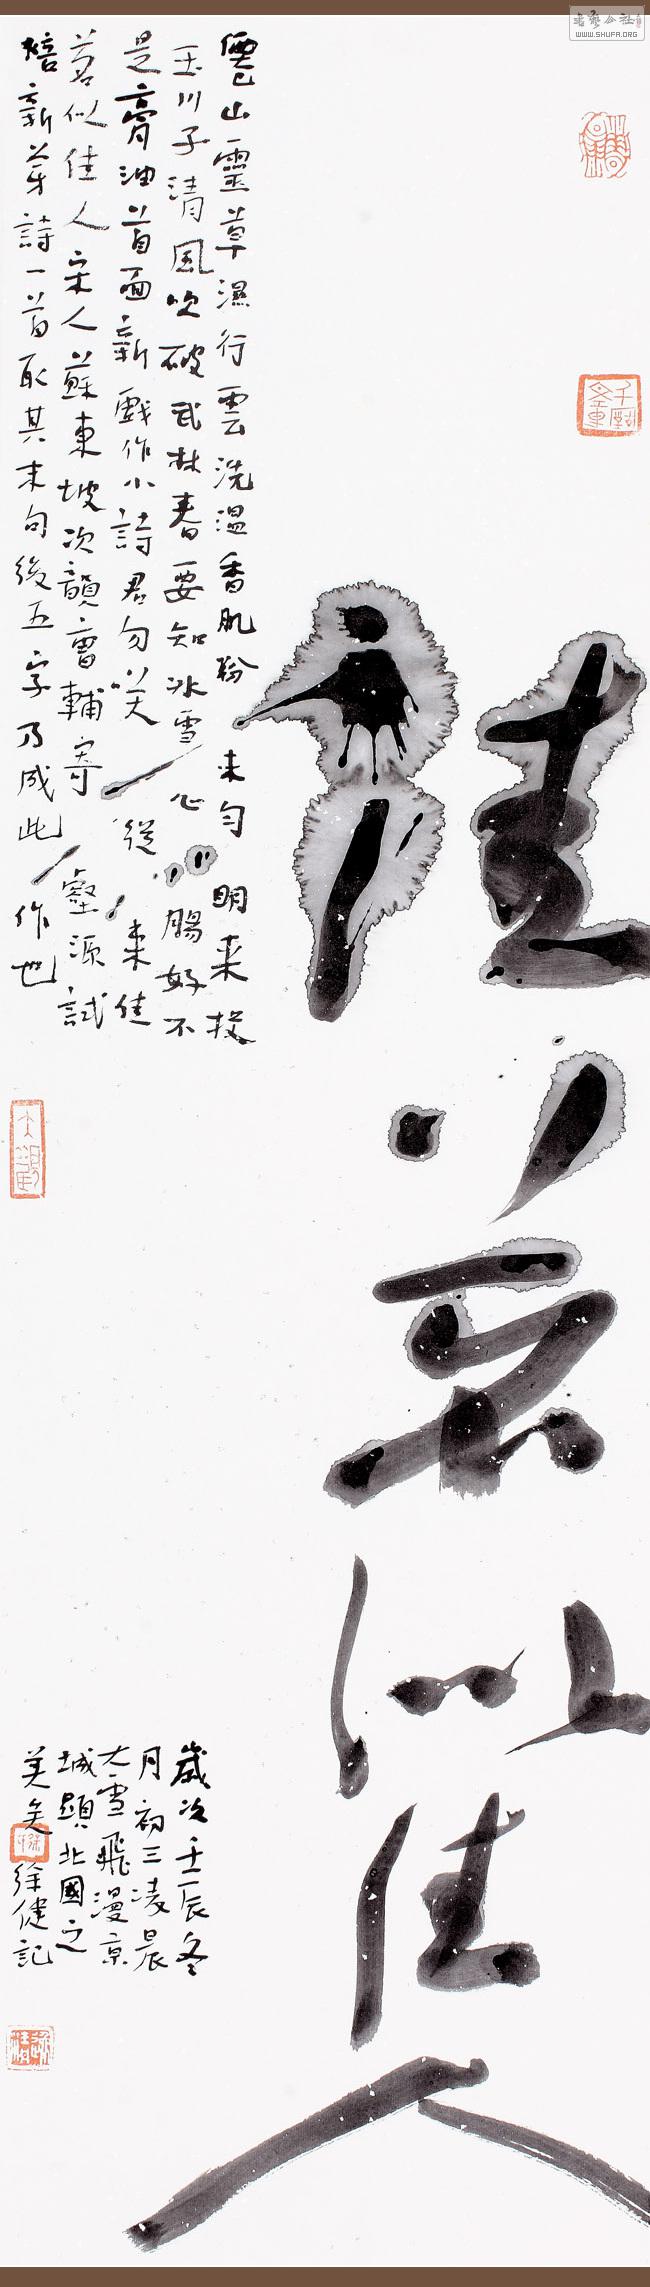 书艺公社
WWW.SHUFA.ORG
佳茗似佳人
僊山靈草濕行雲洗温香肌粉未勻明来投
玉川子清風吹破武林春要知冰雪心腸好不
是膏油首面新戲作小詩君勿笑從来佳
茗似佳人宋人蘇東坡次韻曹輔寄壑源試
焙新芽詩一首取其末句後五字乃成此作也
歲次壬辰冬
月初三凌晨
大雪飛漫京
城顯北國之
美矣徐健記